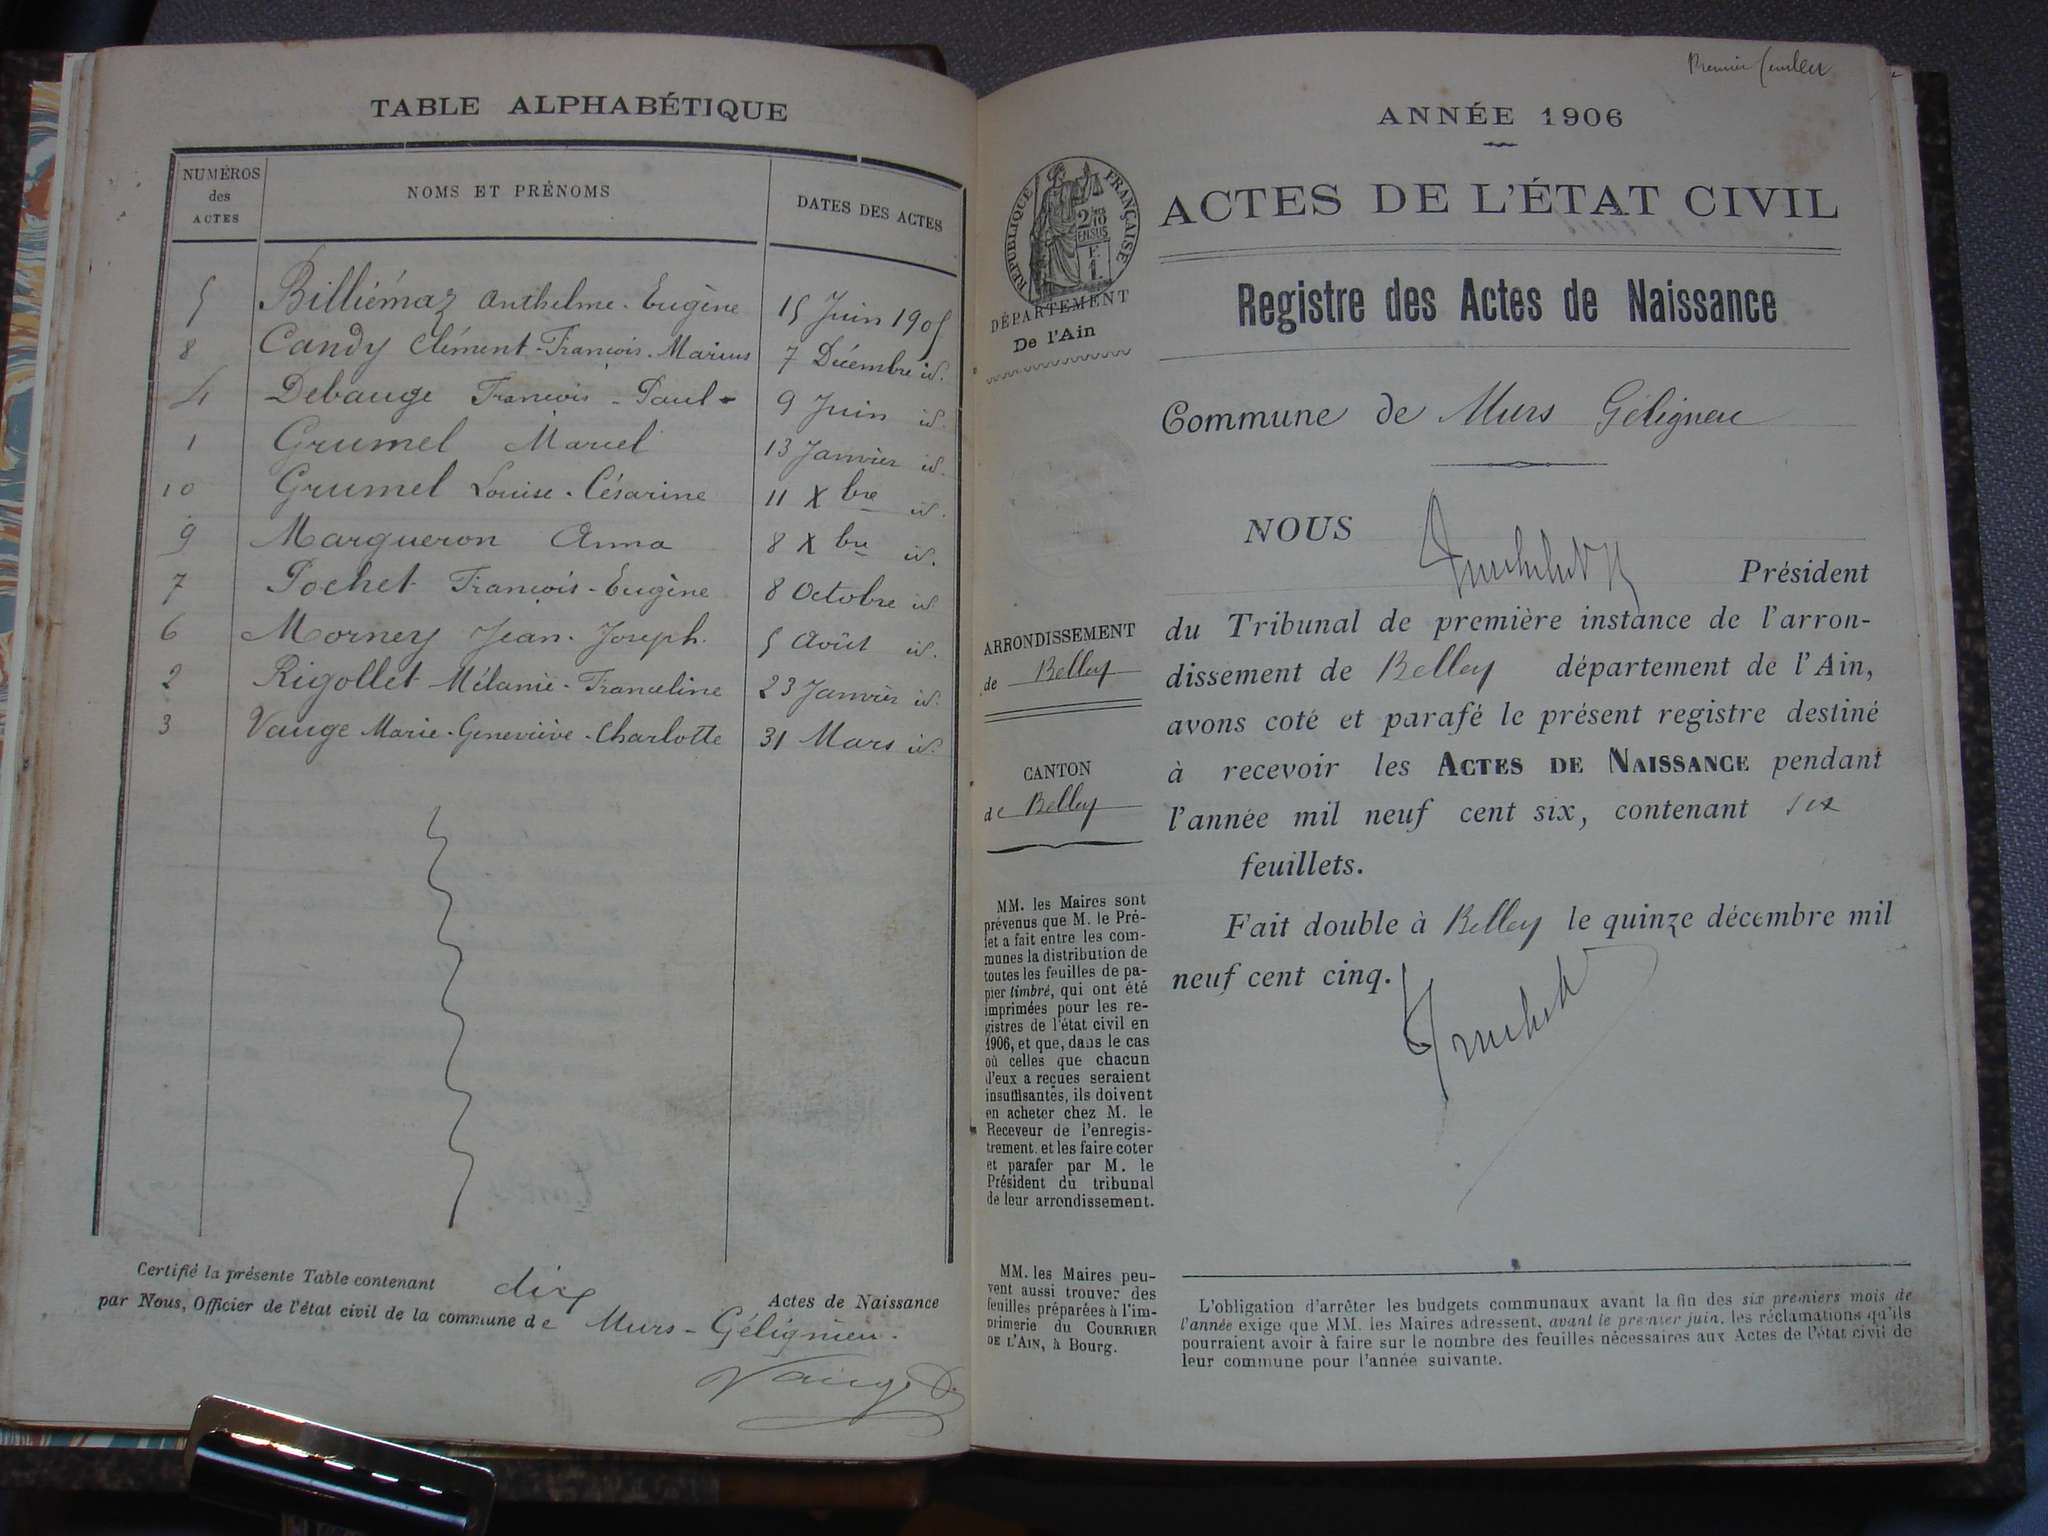 TABLE ALPHABÉTIQUE
NUMÉROS
des
ACTES
NOMS ET PRÉNOMS
DATES DES ACTES
5 Billiémaz Anthelme-Eugène 15 Juin 1905
8 Candy Clément-François-Marius 7 Décembre id.
4 Debauge François-Paul 9 Juin id.
1 Grumel Marcel 13 Janvier id.
10 Grumel Louise-Césarine 11 Xbre id.
9 Margueron Anna 8 Xbre id.
7 Pochet François-Eugène 8 Octobre id
6 Morney Jean-Joseph. 5 Août id.
2 Rigollet Mélanie-Franceline 23 Janvier id.
3 Vauge Marie-Geneviève-Charlotte 31 Mars id.
Certifié la présente Table contenant dix Actes de Naissance
par Nous, Officier de l'état civil de la commune de Murs-Gélignieu.
Vauge
Premier feuillet
ANNÉE 1906
RÉPUBLIQUE FRANÇAISE
2/10
EN SUS
1
F.
DÉPARTEMENT
De l'Ain
ACTES DE L'ÉTAT CIVIL
Registre des Actes de Naissance
Commune de Murs Gélignieu
NOUS
Président
du Tribunal de première instance de l'arron-
dissement de Belley département de l'Ain,
avons coté et parafé le présent registre destiné
à recevoir les ACTES DE NAISSANCE pendant
l'année mil neuf cent six, contenant six
feuillets.
Fait double à Belley le quinze décembre mil
neuf cent cinq.
ARRONDISSEMENT
de Belley
CANTON
de Belley
MM. les Maires sont
prévenus que M. le Pré-
fet a fait entre les com-
munes la distribution de
toutes les feuilles de pa-
pier timbré, qui ont été
imprimées pour les re-
gistres de l'état civil en
1906, et que, dans le cas
où celles que chacun
d'eux a reçues seraient
insuffisantes, ils doivent
en acheter chez M. le
Receveur de l'enregis-
trement, et les faire coter
et parafer par M. le
Président du tribunal
de leur arrondissement.
MM. les Maires peu-
vent aussi trouver des
feuilles préparées à l'im-
primerie du COURRIER
DE L'AIN, à Bourg.
L'obligation d'arrêter les budgets communaux avant la fin des six premiers mois de
l'année exige que MM. les Maires adressent, avant le premier juin, les réclamations qu'ils
pourraient avoir à faire sur le nombre des feuilles nécessaires aux Actes de l'état civil de
leur commune pour l'année suivante.